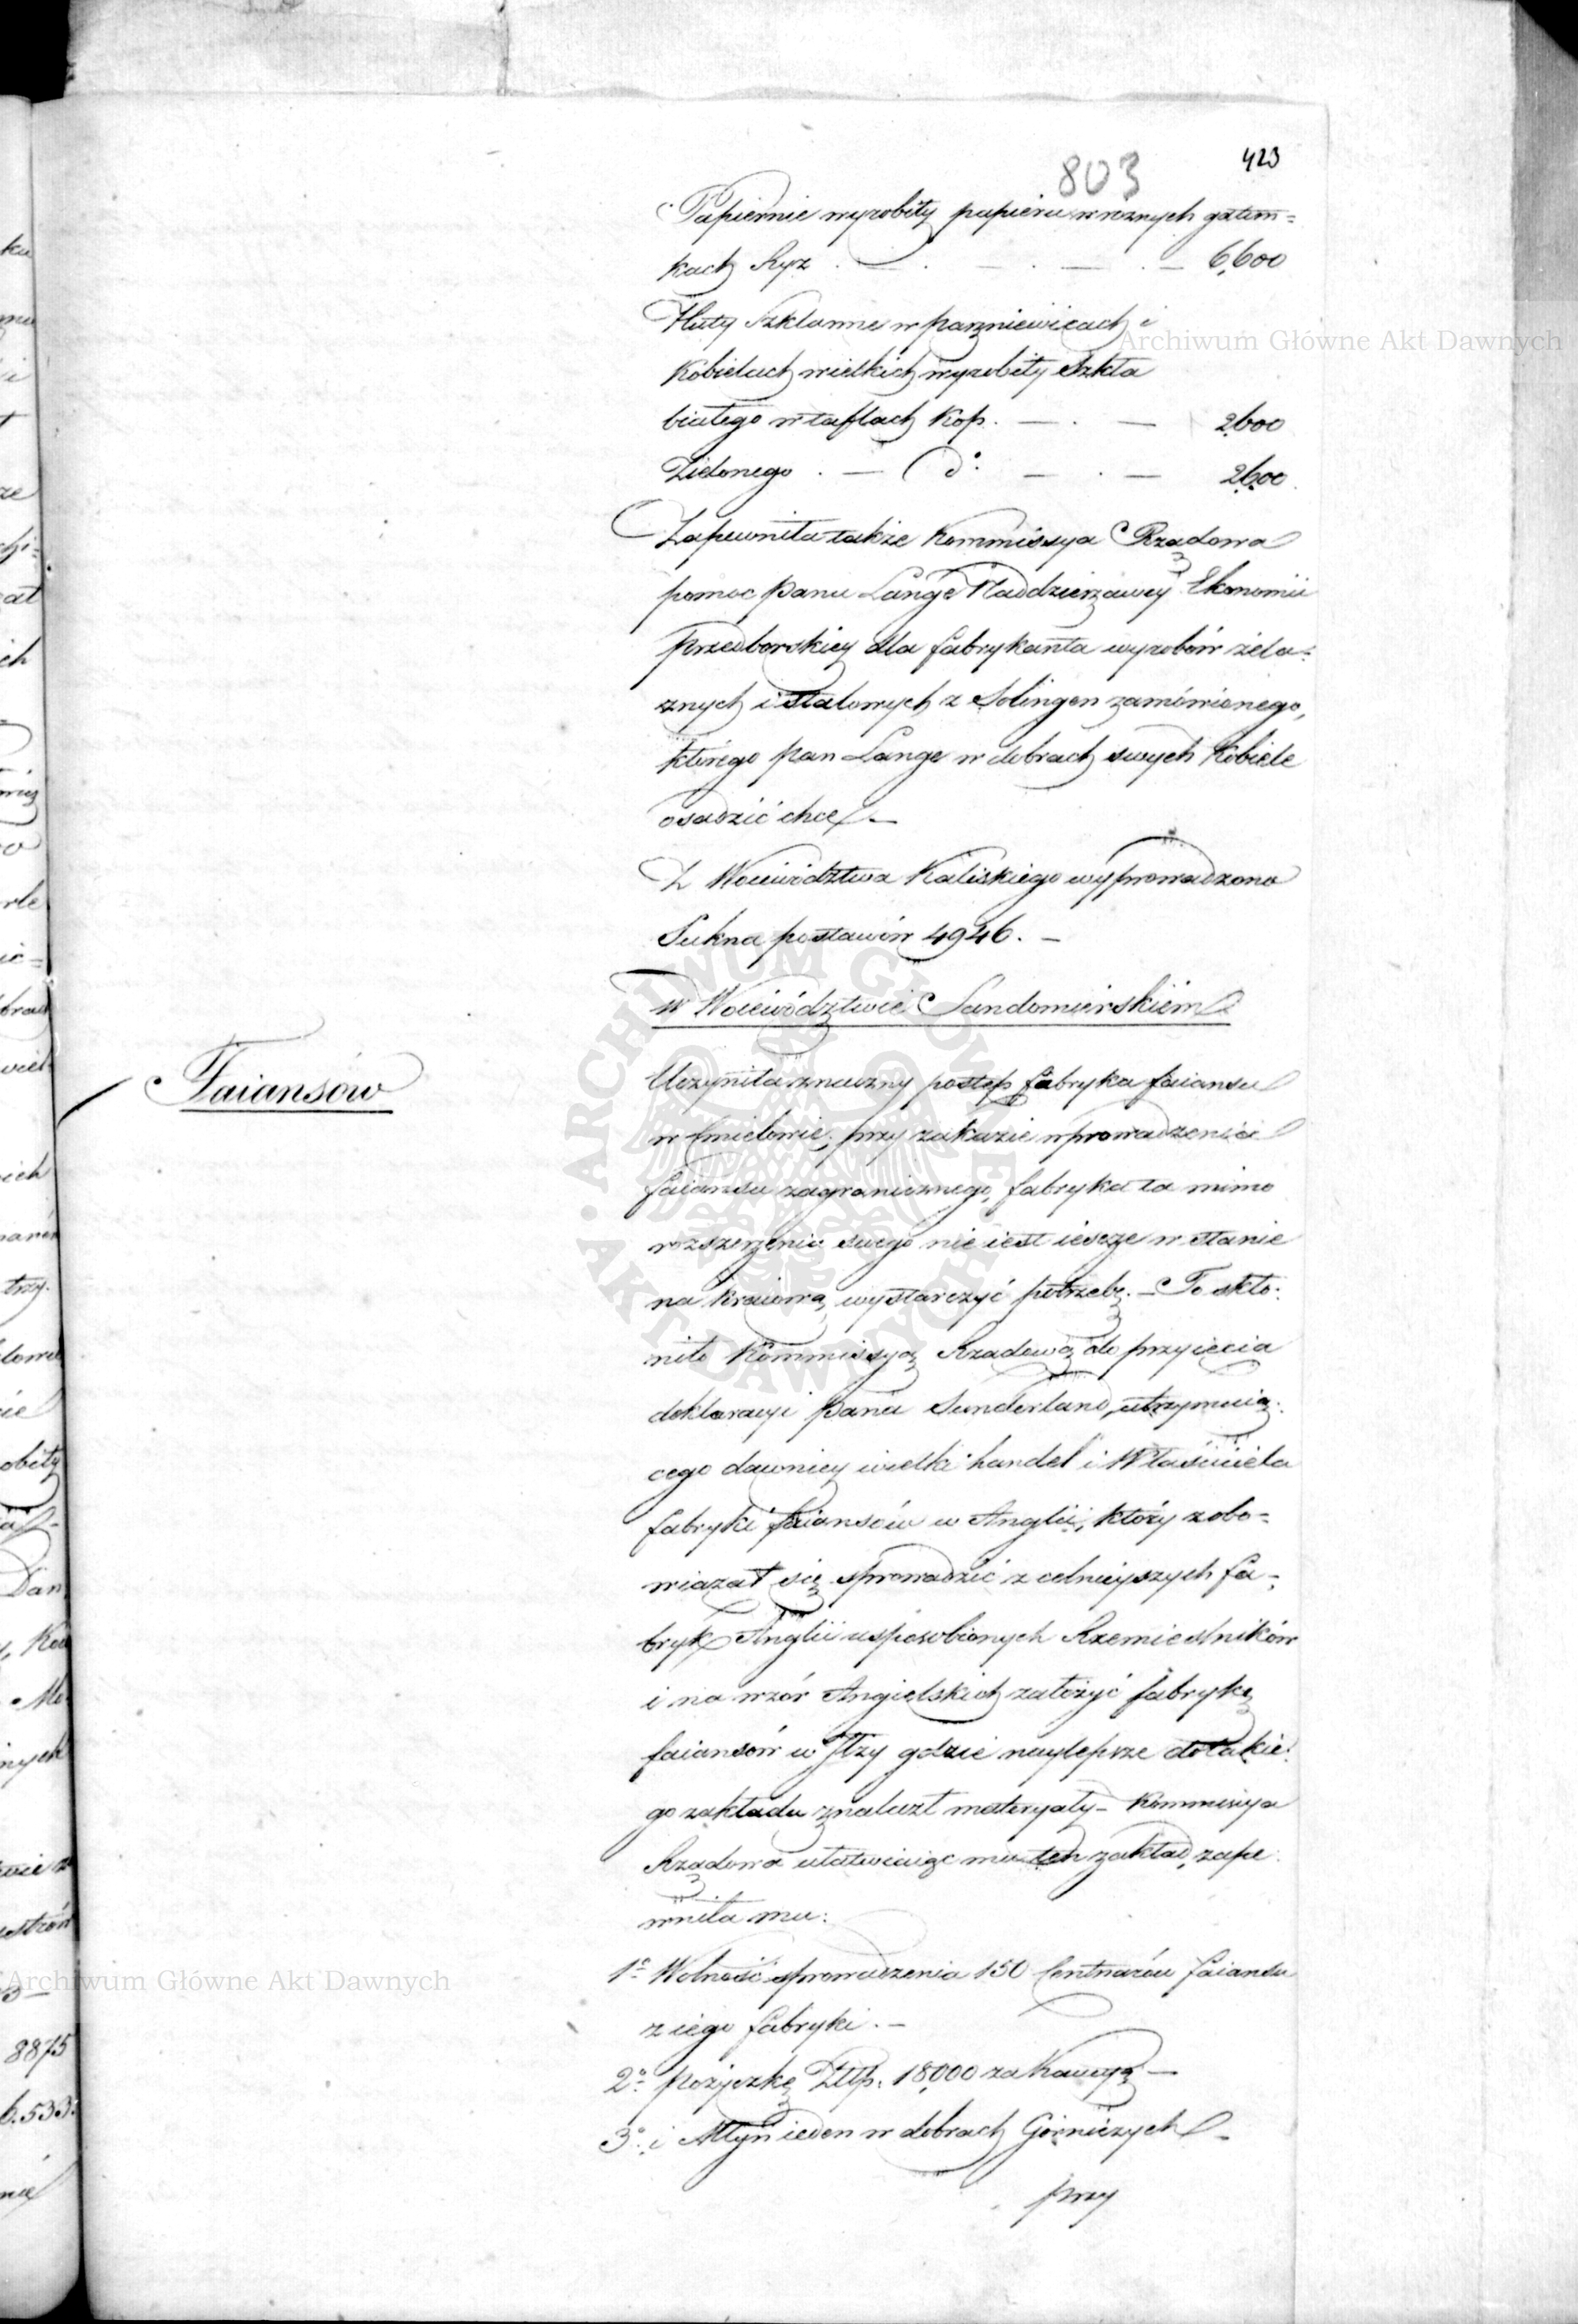 803
423
Papiernie wyrobiły papieru w rożnych gatun=
kach Ryz . — . — . — . — 6,600
Huty Szklanne w parzniewicach i
Kobielach wielkich wyrobiły Szkła
białego w taflach Kop. — . — 2,600
Zielonego . — do: — . — 2,600.
Zapewniła także Kommissya Rządowa
pomoc Panu Lange Naddzierzawcy Ekonomii
Przedborskiey dla fabrykanta wyrobów żela=
znych i stalowych z Solingen zamówionego,
którego Pan Lange w dobrach swych Kobiele
osadzić chce. —
Z Woiewództwa Kaliskiego wyprowadzono
Sukna postawów 4946. —
w Woiewództwie Sandomirskiém
Faiansów
Uczyniła znaczny postęp fabryka faiansu
w Cmielowie; przy zakazie wprowadzenia
faiansu zagranicznego, fabryka ta mimo
rozszerzenia swego nie iest ieszcze w stanie
na kraiową wystarczyć potrzebę. — To skło=
niło Kommissyą Rządową do przyięcia
deklaracyi Pana Sunderland, utrzymuią=
cego dawniey wielki handel i Właściciela
fabryki faiansów w Anglii, który zobo=
wiązał się sprowadzić z celnieyszych fa=
bryk Anglii usposobionych Rzemieślników
i na wzór Angielskich założyć fabrykę
faiansów w Iłży gdzie naylepsze do takie=
go zakładu znalazł materyały — Kommissya
Rządowa ułatwiaiąc mu ten zakład, zape=
wniła mu:
1o Wolność sprowadzenia 150 Centnarów faiansu
z iego fabryki. —
2o pożyczkę Złłp: 18,000 za Kaucyą —
3o i Młyn ieden w dobrach Górniczych —
przy
Archiwum Główne Akt Dawnych
Archiwum Główne Akt Dawnych
ARCHIWUM GŁÓWNE • AKT DAWNYCH •
8875
6.533